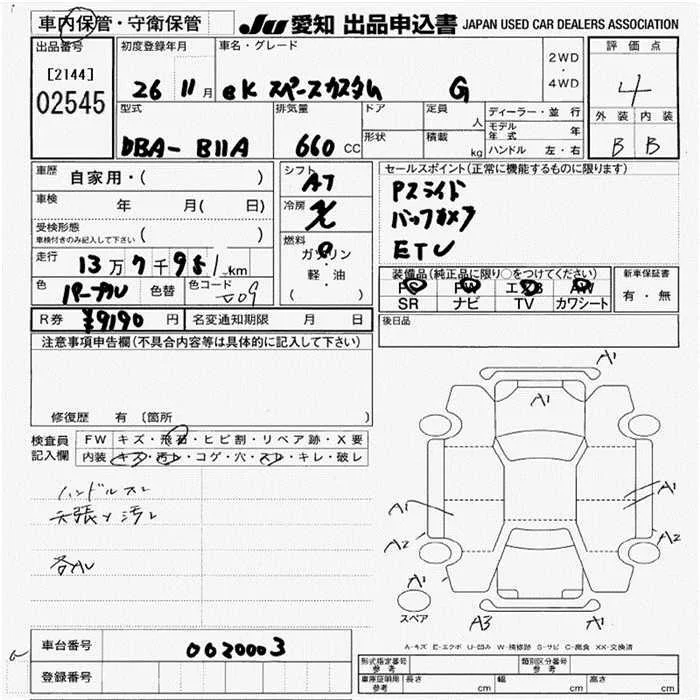 車内保管・守衛保管
JU 愛知 出品申込書 JAPAN USED CAR DEALERS ASSOCIATION
出品番号
[2144]
02545
初度登録年月
26 11月
車名・グレード
eK スペースカスタム G
2WD
・
4WD
評価点
4
外装 内装
B B
型式
DBA- B11A
排気量
660 CC
ドア
形状
定員
人
積載
kg
ディーラー・並行
モデル年式 年
ハンドル 左・右
車歴
自家用・( )
車検
年 月( 日)
受検形態
車検付きのみ記入して下さい ( )
走行
13万7千95 km
色
パープル
色替
色コード
R券 ¥9190 円
名変通知期限 月 日
シフト
AT
冷房
燃料
ガソリン
・
軽・油
( )
セールスポイント(正常に機能するものに限ります)
Pスライド
バックカメラ
ETC
装備品(純正品に限り○をつけてください)
PS PW エアB AW
SR ナビ TV カワシート
新車保証書
有・無
後日品
注意事項申告欄(不具合内容等は具体的に記入して下さい)
修復歴 有〔箇所
検査員
記入欄
FW キズ・飛石・ヒビ割・リペア跡・X要
内装 キズ・汚レ・コゲ・穴・スレ・キレ・破レ
ハンドルスレ
天張り汚レ
各AU
A1
A1
A1
A1
A1
A2
A2
A1
スペア
A3
A1
A-キズ E-エクボ U-凹み W-補修跡 S-サビ C-腐食 XX-交換済
車台番号
0020003
登録番号
形式指定番号
参考
類別区分番号
参考
車庫証明用
参考
長さ cm
幅 cm
高さ cm